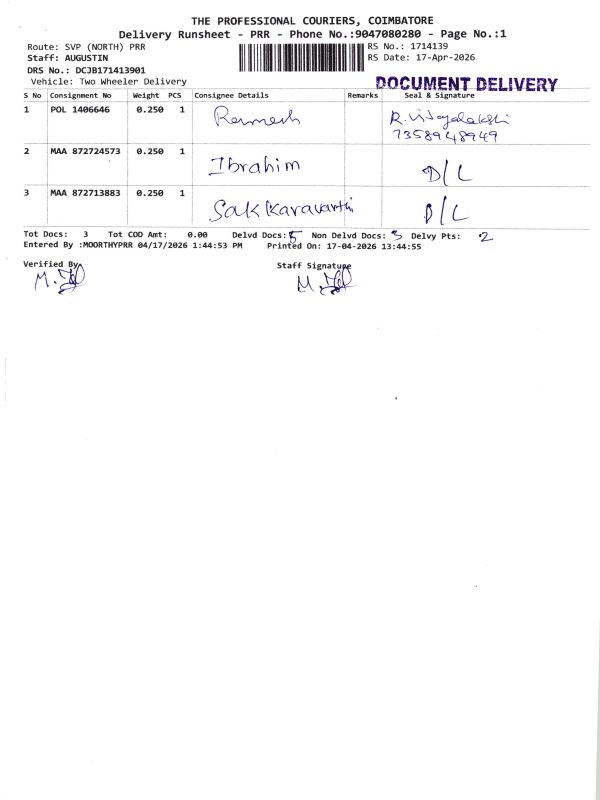 THE PROFESSIONAL COURIERS, COIMBATORE
Delivery Runsheet - PRR - Phone No.:9047080280 - Page No.:1
Route: SVP (NORTH) PRR
RS No.: 1714139
Staff: AUGUSTIN
RS Date: 17-Apr-2026
DRS No.: DCJB171413901
Vehicle: Two Wheeler Delivery
DOCUMENT DELIVERY
S No Consignment No Weight PCS Consignee Details Remarks Seal & Signature
1 POL 1406646 0.250 1 Ramesh R. Vijayalakshi
7358948949
2 MAA 872724573 0.250 1 Ibrahim D/L
3 MAA 872713883 0.250 1 Sakkaravarthi D/L
Tot Docs: 3 Tot COD Amt: 0.00 Delvd Docs: 5 Non Delvd Docs: 3 Delvy Pts: 2
Entered By :MOORTHYPRR 04/17/2026 1:44:53 PM Printed On: 17-04-2026 13:44:55
Verified By
Staff Signature